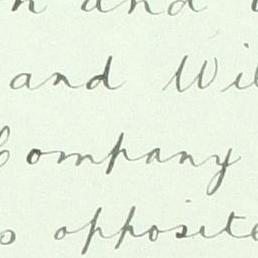 and
and
Company
opposite